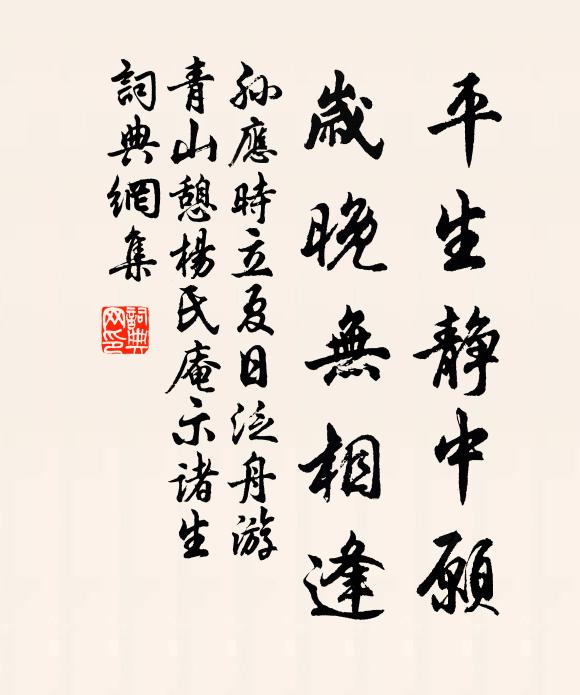 平生靜中願
歲晚無相逢
孫應時立夏日泛舟游
青山憩楊氏庵示诸生
詞典網集
詞典网印